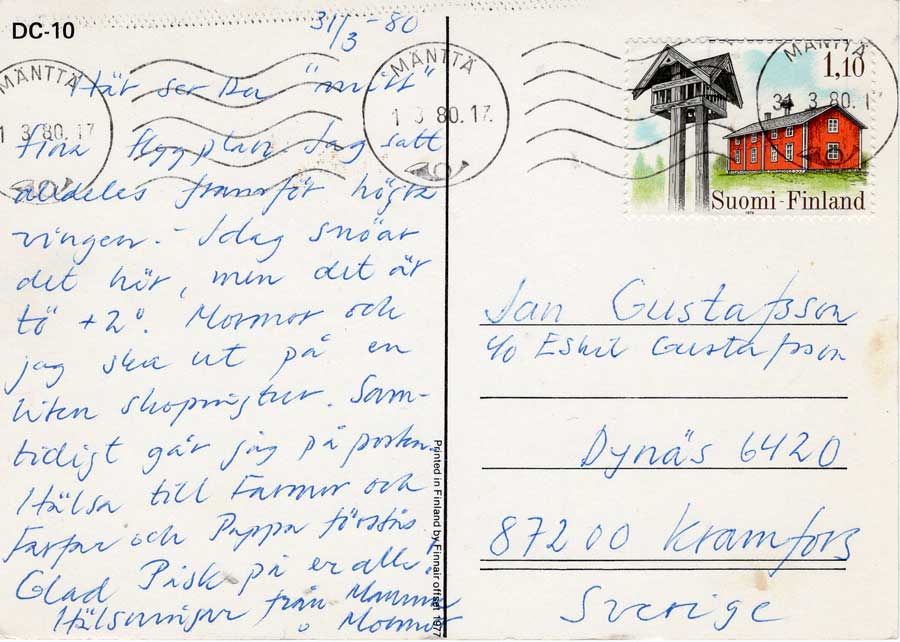 DC-10
31/3 -80
MÄNTTÄ
1 3 80.17
Här ser Du "mitt"
fina flygplan. Jag satt
alldeles framför högra
vingen. - Idag snöar
det här, men det är
tö +2°. Mormor och
jag ska ut på en
liten shoppingtur. Sam-
tidigt går jag på posten.
Hälsa till Farmor och
Farfar och Pappa förstås
Glad Påsk på er alla!
Hälsningar från Mamma
o Mormor
Printed in Finland by Finnair offset 1977
MÄNTTÄ
1 3 80.17.
MÄNTTÄ
31 3 80.17
1,10
Suomi-Finland
1979
Jan Gustafsson
c/o Eskil Gustafsson
Dynäs 6420
872 00 Kramfors
Sverige